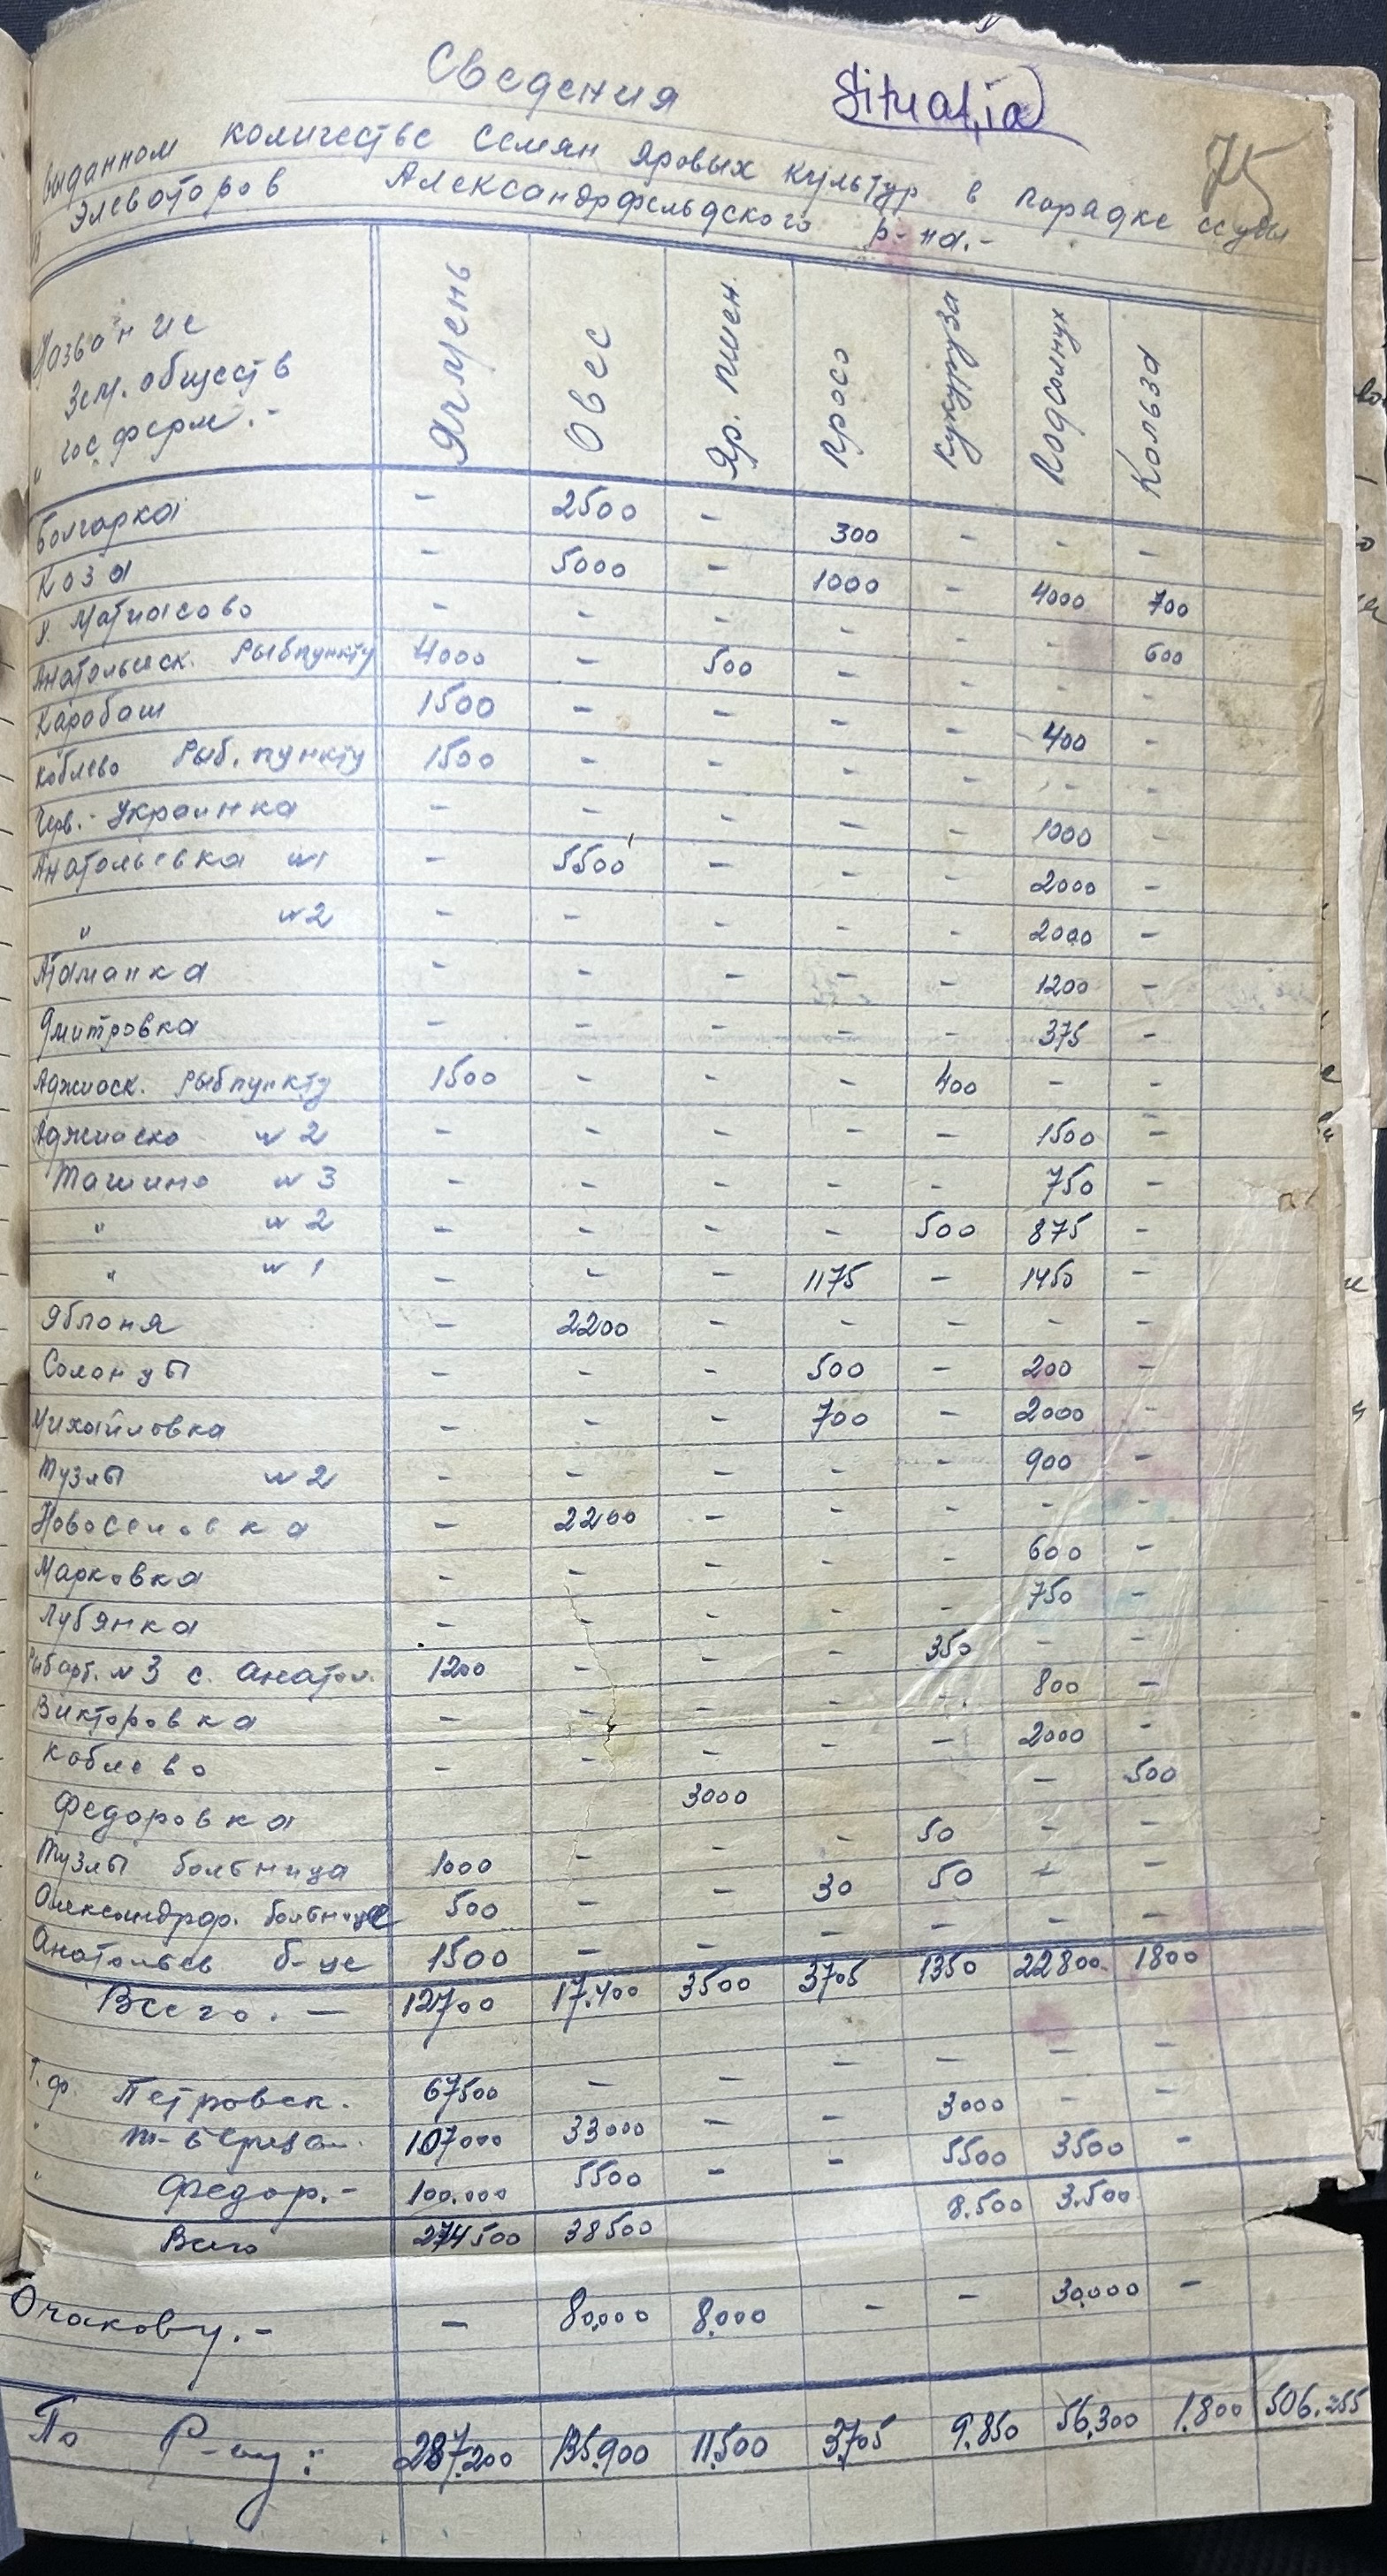 Сведения Situația
75
выданном количестве семян яровых культур в порядке ссуды
из элеваторов Александрфельдского р-на.-
Название Зем. обществ " гос ферм.- Ячмень Овес Яр. пшен. Просо Кукуруза Подсолнух Кользо
Болгарка - 2500 - 300 - - -
Коза - 5000 - 1000 - 4000 700
х. Матиасово - - - - - - 600
Анатольевск. Рыбпункту 4000 - 500 - - - -
Карабаш 1500 - - - - 400 -
Коблево Рыб. пункту 1500 - - - - - -
Черв.-Украинка - - - - - 1000 -
Анатольевка №1 - 5500 - - - 2000 -
" №2 - - - - - 2000 -
Атаманка - - - - - 1200 -
Дмитровка - - - - - 375 -
Аджиаск. Рыбпункту 1500 - - - 400 - -
Аджиаско №2 - - - - - 1500 -
Ташино №3 - - - - - 750 -
" №2 - - - - 500 875 -
" №1 - - - 1175 - 1450 -
Яблоня - 2200 - - - - -
Солонцы - - - 500 - 200 -
Михайловка - - - 700 - 2000 -
Тузлы №2 - - - - - 900 -
Новоселовка - 2200 - - - - -
Марковка - - - - - 600 -
Лубянка - - - - - 750 -
Рыб арт. №3 с. Анатол. 1200 - - - 350 - -
Викторовка - - - - - 800 -
Коблево - - - - 2000 -
Федоровка 3000 - 500
Тузлы больница 1000 - - - 50 - -
Александрф. больнице 500 - - 30 50 - -
Анатольев б-це 1500 - - - - - -
Всего.- 12700 17.400 3500 3705 1350 22800 1800
Г.ф. Петровск. 67500 - - - - - -
" Т-Березан. 107000 33000 - - 3000 - -
" Федор.- 100.000 5500 - - 5500 3500 -
Всего 274500 38500 8.500 3.500
Очакову.- - 80,000 8.000 - - 30,000 -
По Р-ну: 287.200 135.900 11.500 3.705 9.850 56.300 1.800 506.255